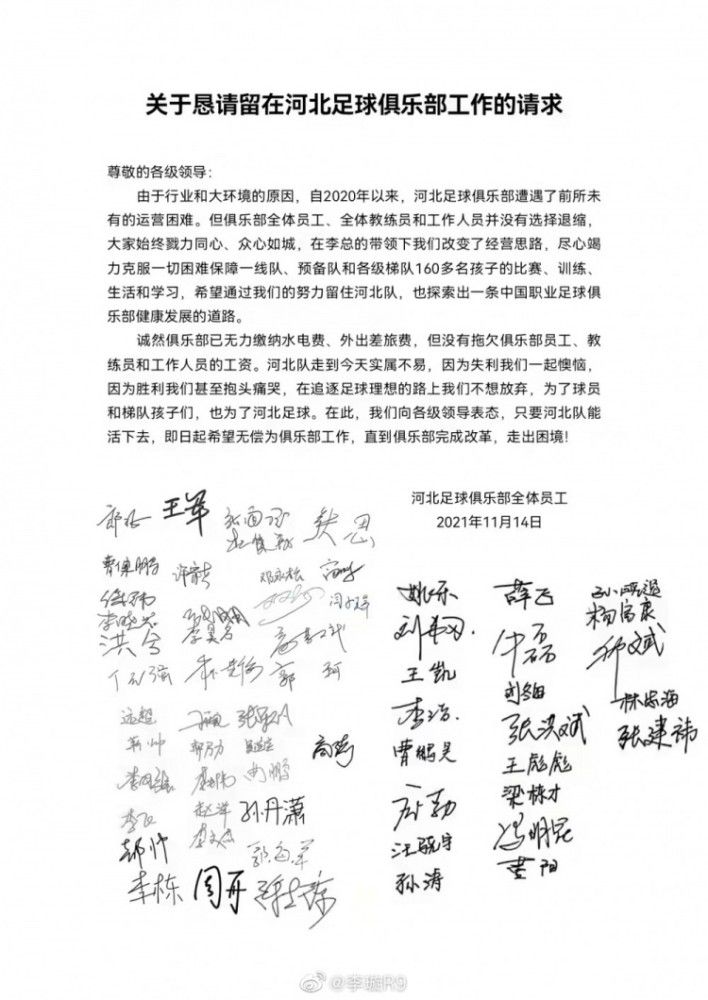 关于恳请留在河北足球俱乐部工作的请求
尊敬的各级领导：
由于行业和大环境的原因，自2020年以来，河北足球俱乐部遭遇了前所未
有的运营困难。但俱乐部全体员工、全体教练员和工作人员并没有选择退缩，
大家始终戮力同心、众心如城，在李总的带领下我们改变了经营思路，尽心竭
力克服一切困难保障一线队、预备队和各级梯队160多名孩子的比赛、训练、
生活和学习，希望通过我们的努力留住河北队，也探索出一条中国职业足球俱
乐部健康发展的道路。
诚然俱乐部已无力缴纳水电费、外出差旅费，但没有拖欠俱乐部员工、教
练员和工作人员的工资。河北队走到今天实属不易，因为失利我们一起懊恼，
因为胜利我们甚至抱头痛哭，在追逐足球理想的路上我们不想放弃，为了球员
和梯队孩子们，也为了河北足球。在此，我们向各级领导表态，只要河北队能
活下去，即日起希望无偿为俱乐部工作，直到俱乐部完成改革，走出困境！
河北足球俱乐部全体员工
2021年11月14日
王军
曹保鹏
李晓芯
洪兮
郭珂
孙丹潇
郝帅
李栋 周丹
姚乐 薛飞
杨富康
王凯
李浩
林宏海
曹鹏昊 张洪斌 张建祎
王彪彪
梁栋才
汪晓宇 冯明昆
孙涛 黄阳
@李璇R9